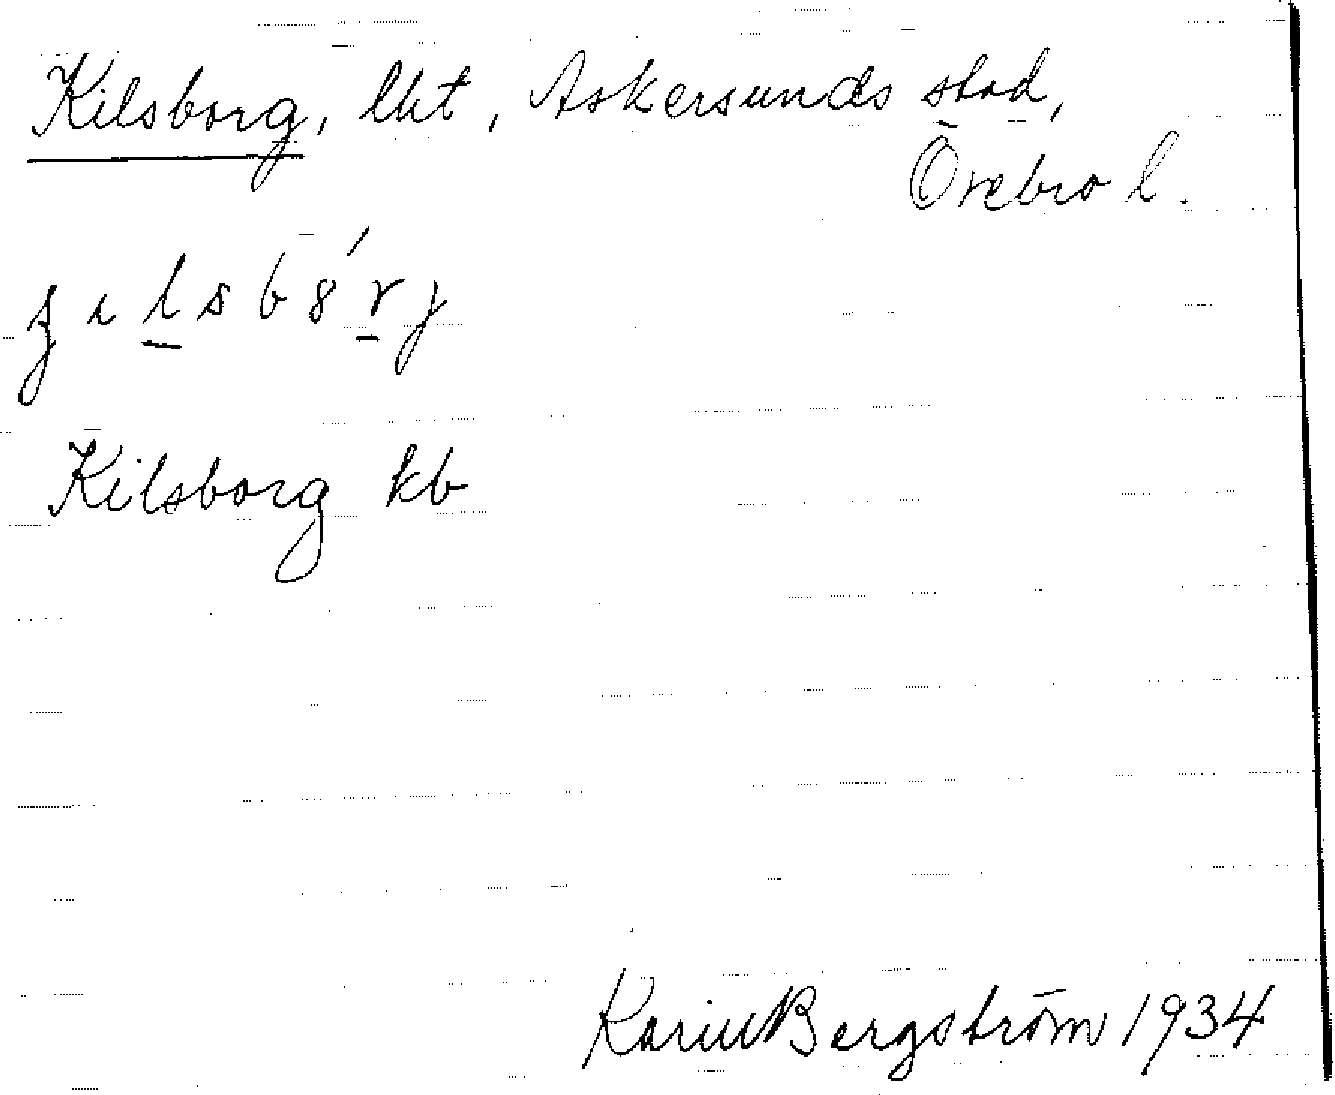 Kilsborg, lht, Askersunds stad,
Örebro l.
Kilsborg kb
Karin Bergström 1934